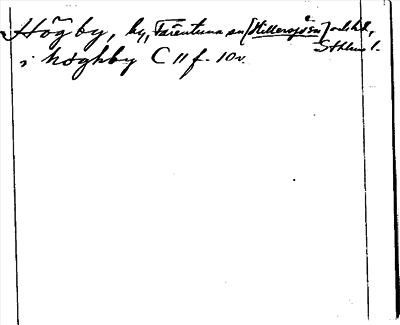 Högby, by, Färentuna sn [Hillersjö sn] och hd,
Sthlms l.
i höghby C 11 f. 10v.